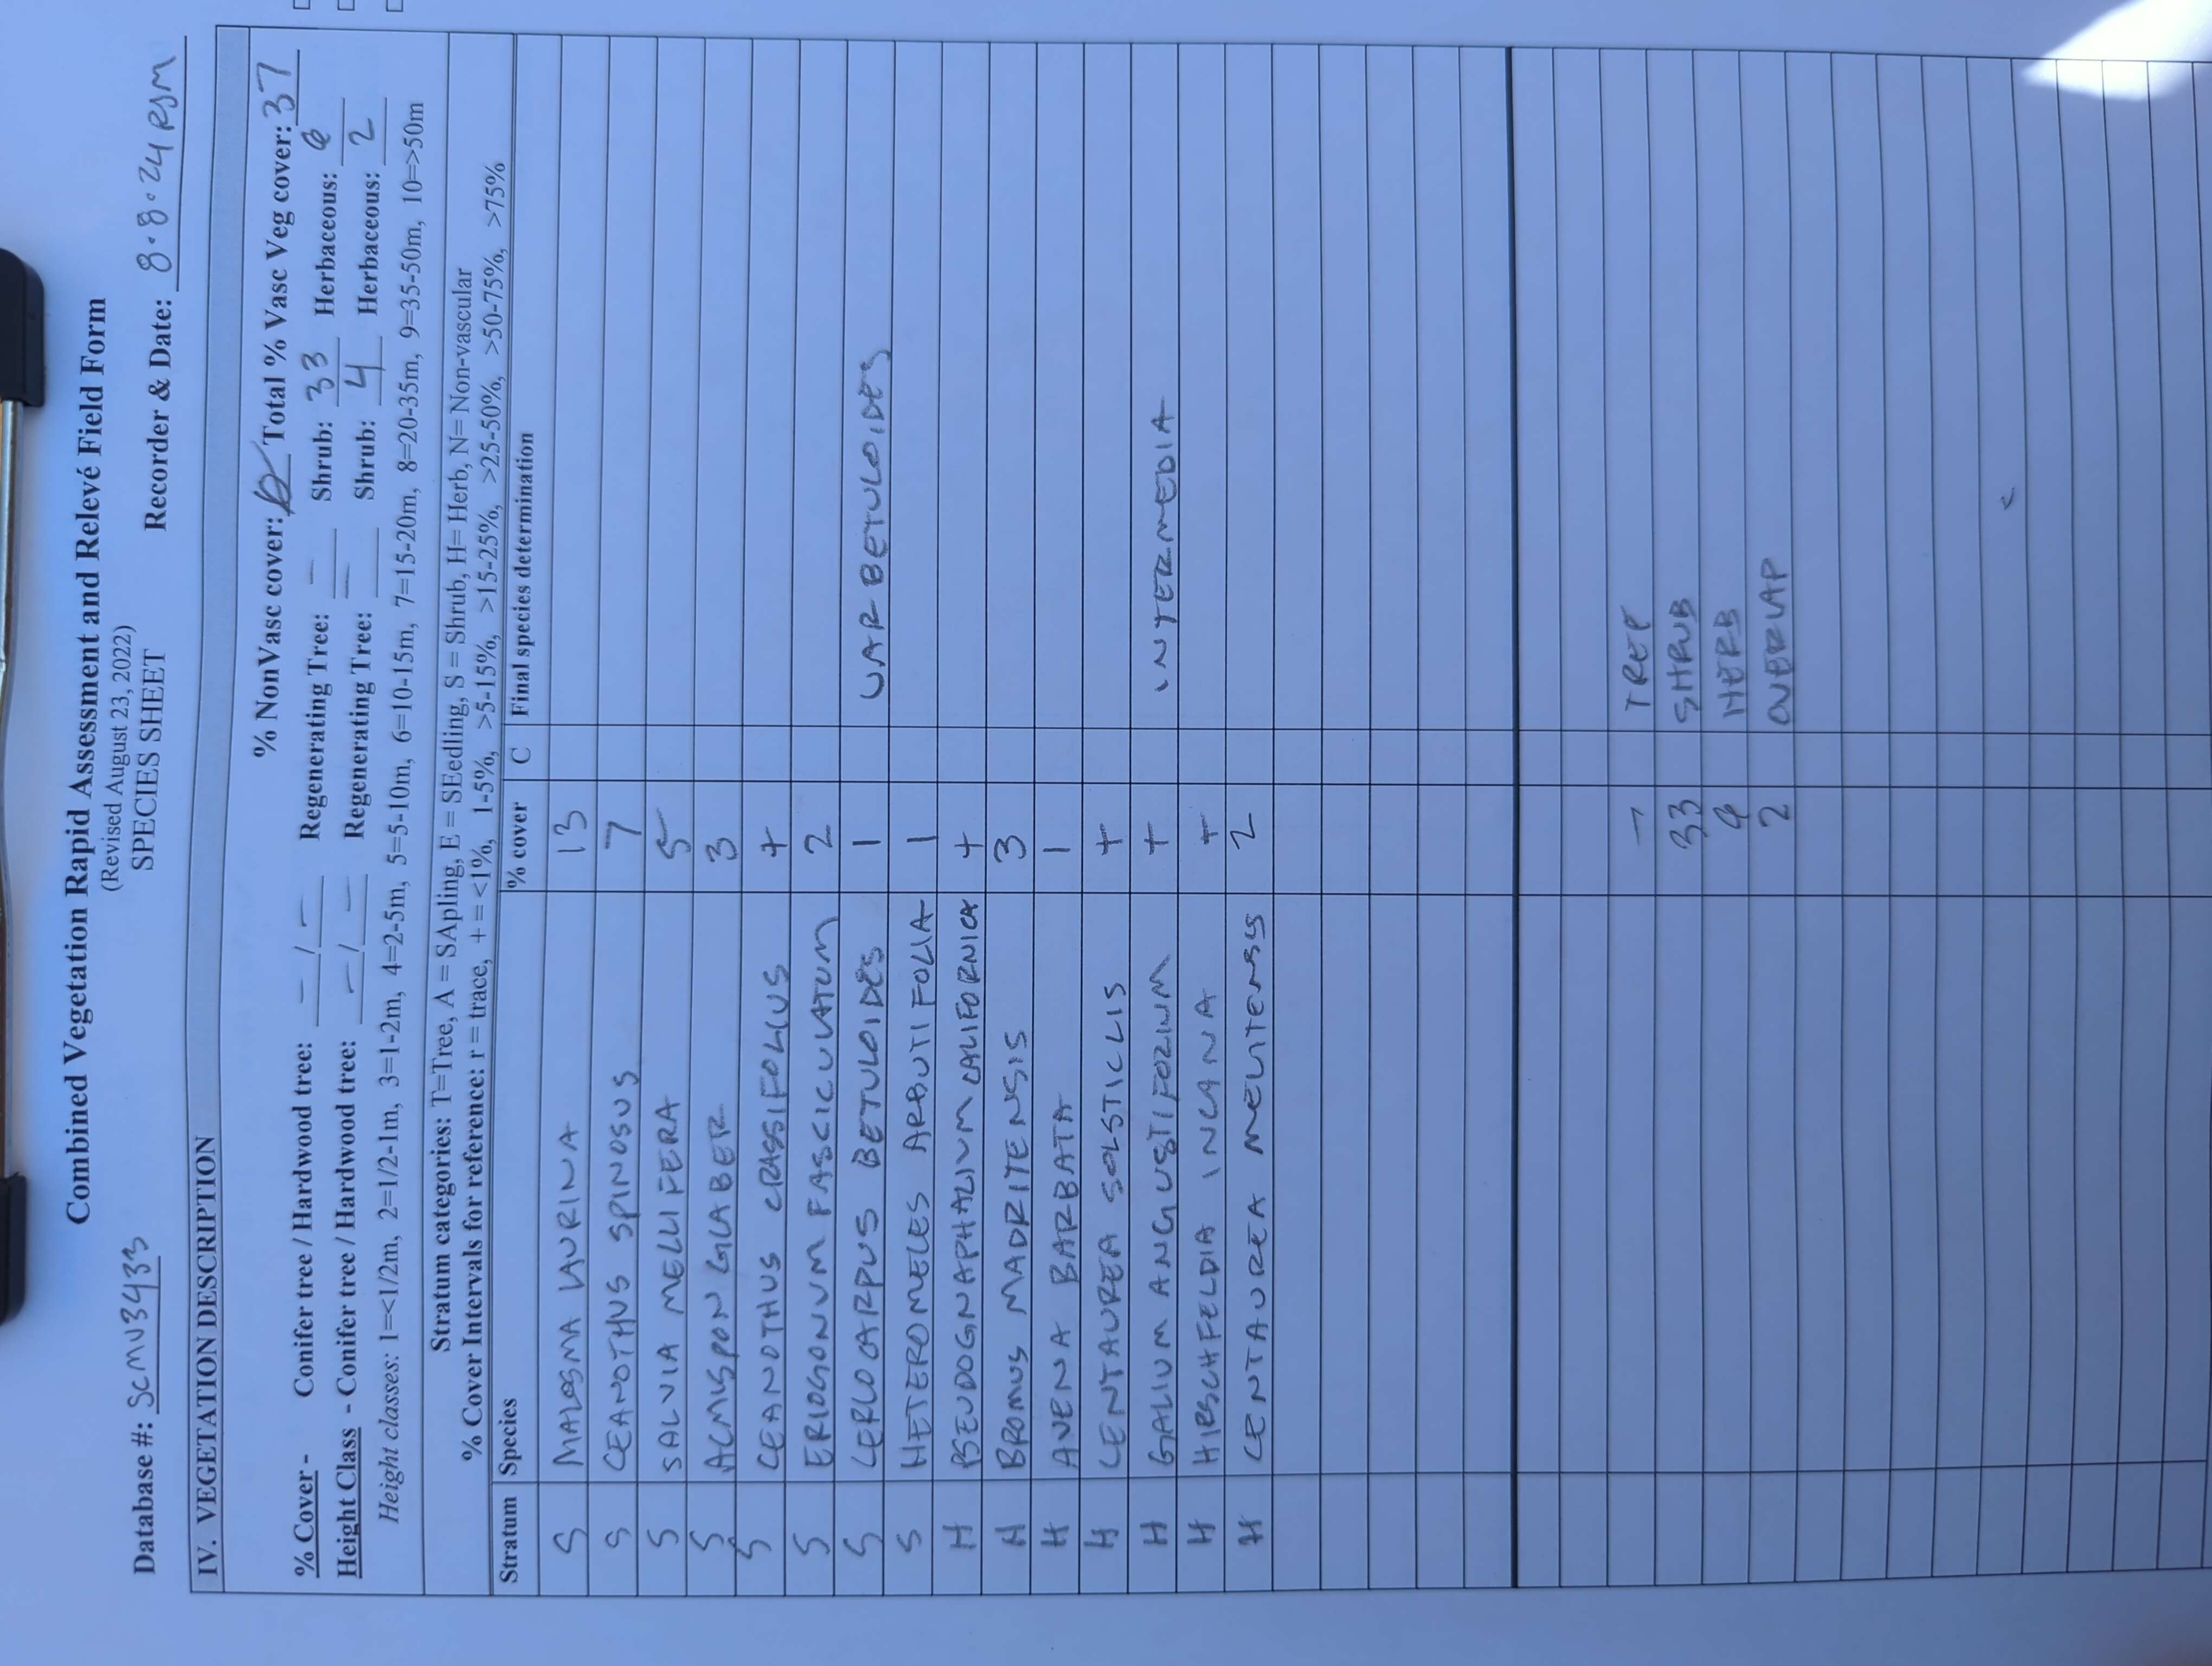 Combined Vegetation Rapid Assessment and Relevé Field Form
(Revised August 23, 2022)
SPECIES SHEET
Database #: SCMV3433 Recorder & Date: 8.8.24 RJM
IV. VEGETATION DESCRIPTION
% NonVasc cover: Total % Vasc Veg cover: 37
% Cover - Conifer tree / Hardwood tree: - / - Regenerating Tree: - Shrub: 33 Herbaceous:
Height Class - Conifer tree / Hardwood tree: - / - Regenerating Tree: - Shrub: 4 Herbaceous: 2
Height classes: 1=<1/2m, 2=1/2-1m, 3=1-2m, 4=2-5m, 5=5-10m, 6=10-15m, 7=15-20m, 8=20-35m, 9=35-50m, 10=>50m
Stratum categories: T=Tree, A = SApling, E = SEedling, S = Shrub, H= Herb, N= Non-vascular
% Cover Intervals for reference: r = trace, + = <1%, 1-5%, >5-15%, >15-25%, >25-50%, >50-75%, >75%
Stratum Species % cover C Final species determination
S MALOSMA LAURINA 13
S CEANOTHUS SPINOSUS 7
S SALVIA MELLIFERA 5
S ACMISPON GLABER 3
S CEANOTHUS CRASSIFOLIUS +
S ERIOGONUM FASCICULATUM 2
S CERCOCARPUS BETULOIDES 1 VAR BETULOIDES
S HETEROMELES ARBUTIFOLIA 1
H PSEUDOGNAPHALIUM CALIFORNICA +
H BROMUS MADRITENSIS 3
H AVENNA BARBATA 1
H CENTAUREA SOLSTICLIS +
H GALIUM ANGUSTIFOZIUM + INTERMEDIA
H HIRSCHFELDIA INCANA +
H CENTAUREA MELITENSS 2
- TREE
33 SHRUB
HERB
2 OVERLAP